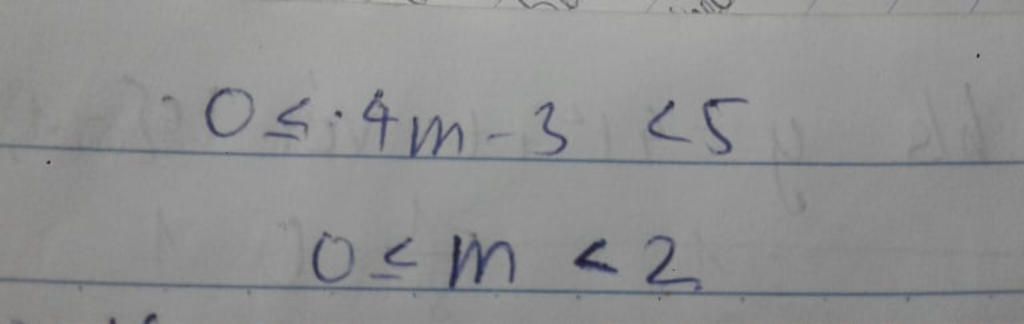 0 ≤ · 4m - 3 < 5
0 ≤ m < 2